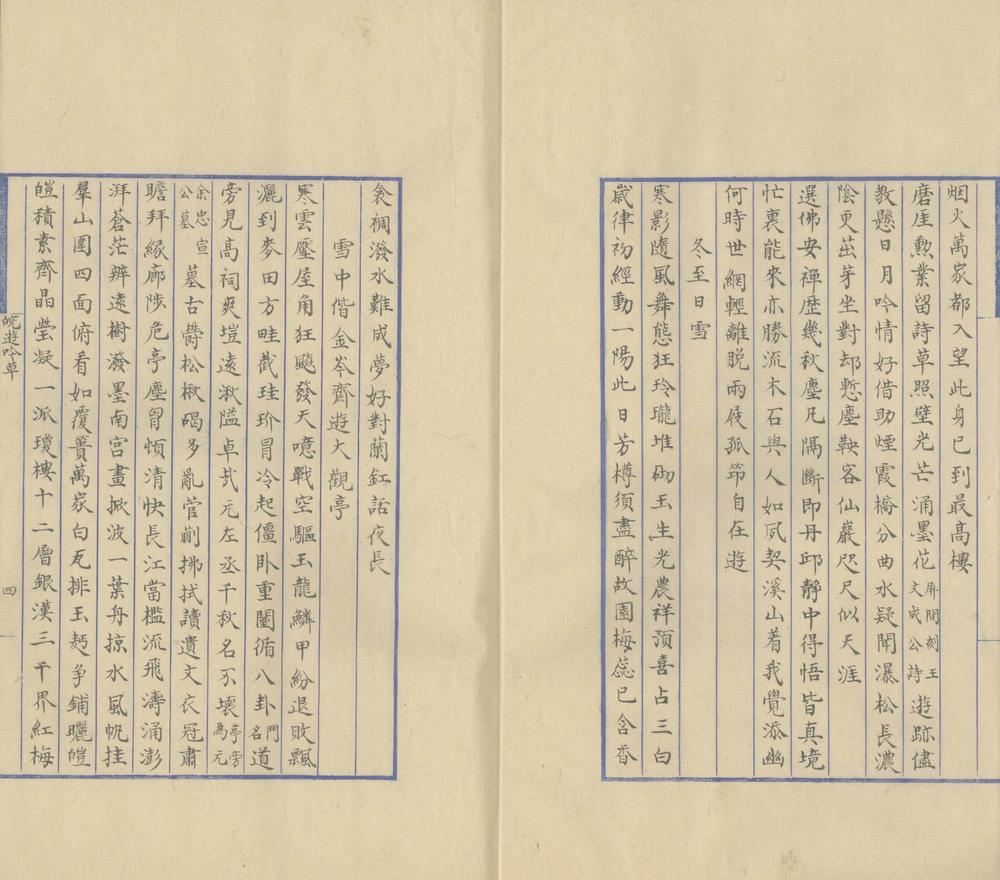 烟火萬家都入望此身已到最高樓
磨厓勲業留詩草照壁光芒涌墨花屏間刻王文成公詩遊跡儘
教懸日月吟情好借助煙霞橋分曲水疑聞瀑松長濃
陰更茁芽坐對却慙塵鞅客仙巖咫尺似天涯
選佛安禪歴幾秋塵凡隔斷即丹邱靜中得悟皆真境
忙裏能來亦勝流木石與人如夙契溪山着我覺添幽
何時世網輕離脱兩屐孤筇自在遊
冬至日雪
寒影隨風舞態狂玲瓏堆砌玉生光農祥預喜占三白
歲律初經動一陽此日芳樽須盡醉故園梅蕊已含香
衾裯潑水難成夢好對蘭釭話夜長
雪中偕金岑齋遊大觀亭
寒雲壓屋角狂飈發天噫戰空驅玉龍鱗甲紛退敗飄
灑到麥田方畦截珪玠冒冷起僵卧重闉循八卦門名道
旁見高祠爽塏遠湫隘卓㢤元左丞千秋名不壞亭旁為元
余忠宣公墓墓古欝松楸碣多亂菅蒯拂拭讀遺文衣冠肅
瞻拜緣廊陟危亭塵胷頓清快長江當檻流飛濤涌澎
湃蒼茫辨遠樹潑墨南宫畫掀波一葉舟掠水風帆挂
羣山圍四面俯看如覆蕢萬家白瓦排玉𧺆争鋪曬皚
皚積素齊晶瑩凝一派瓊樓十二層銀漢三千界紅梅
皖遊吟草
四